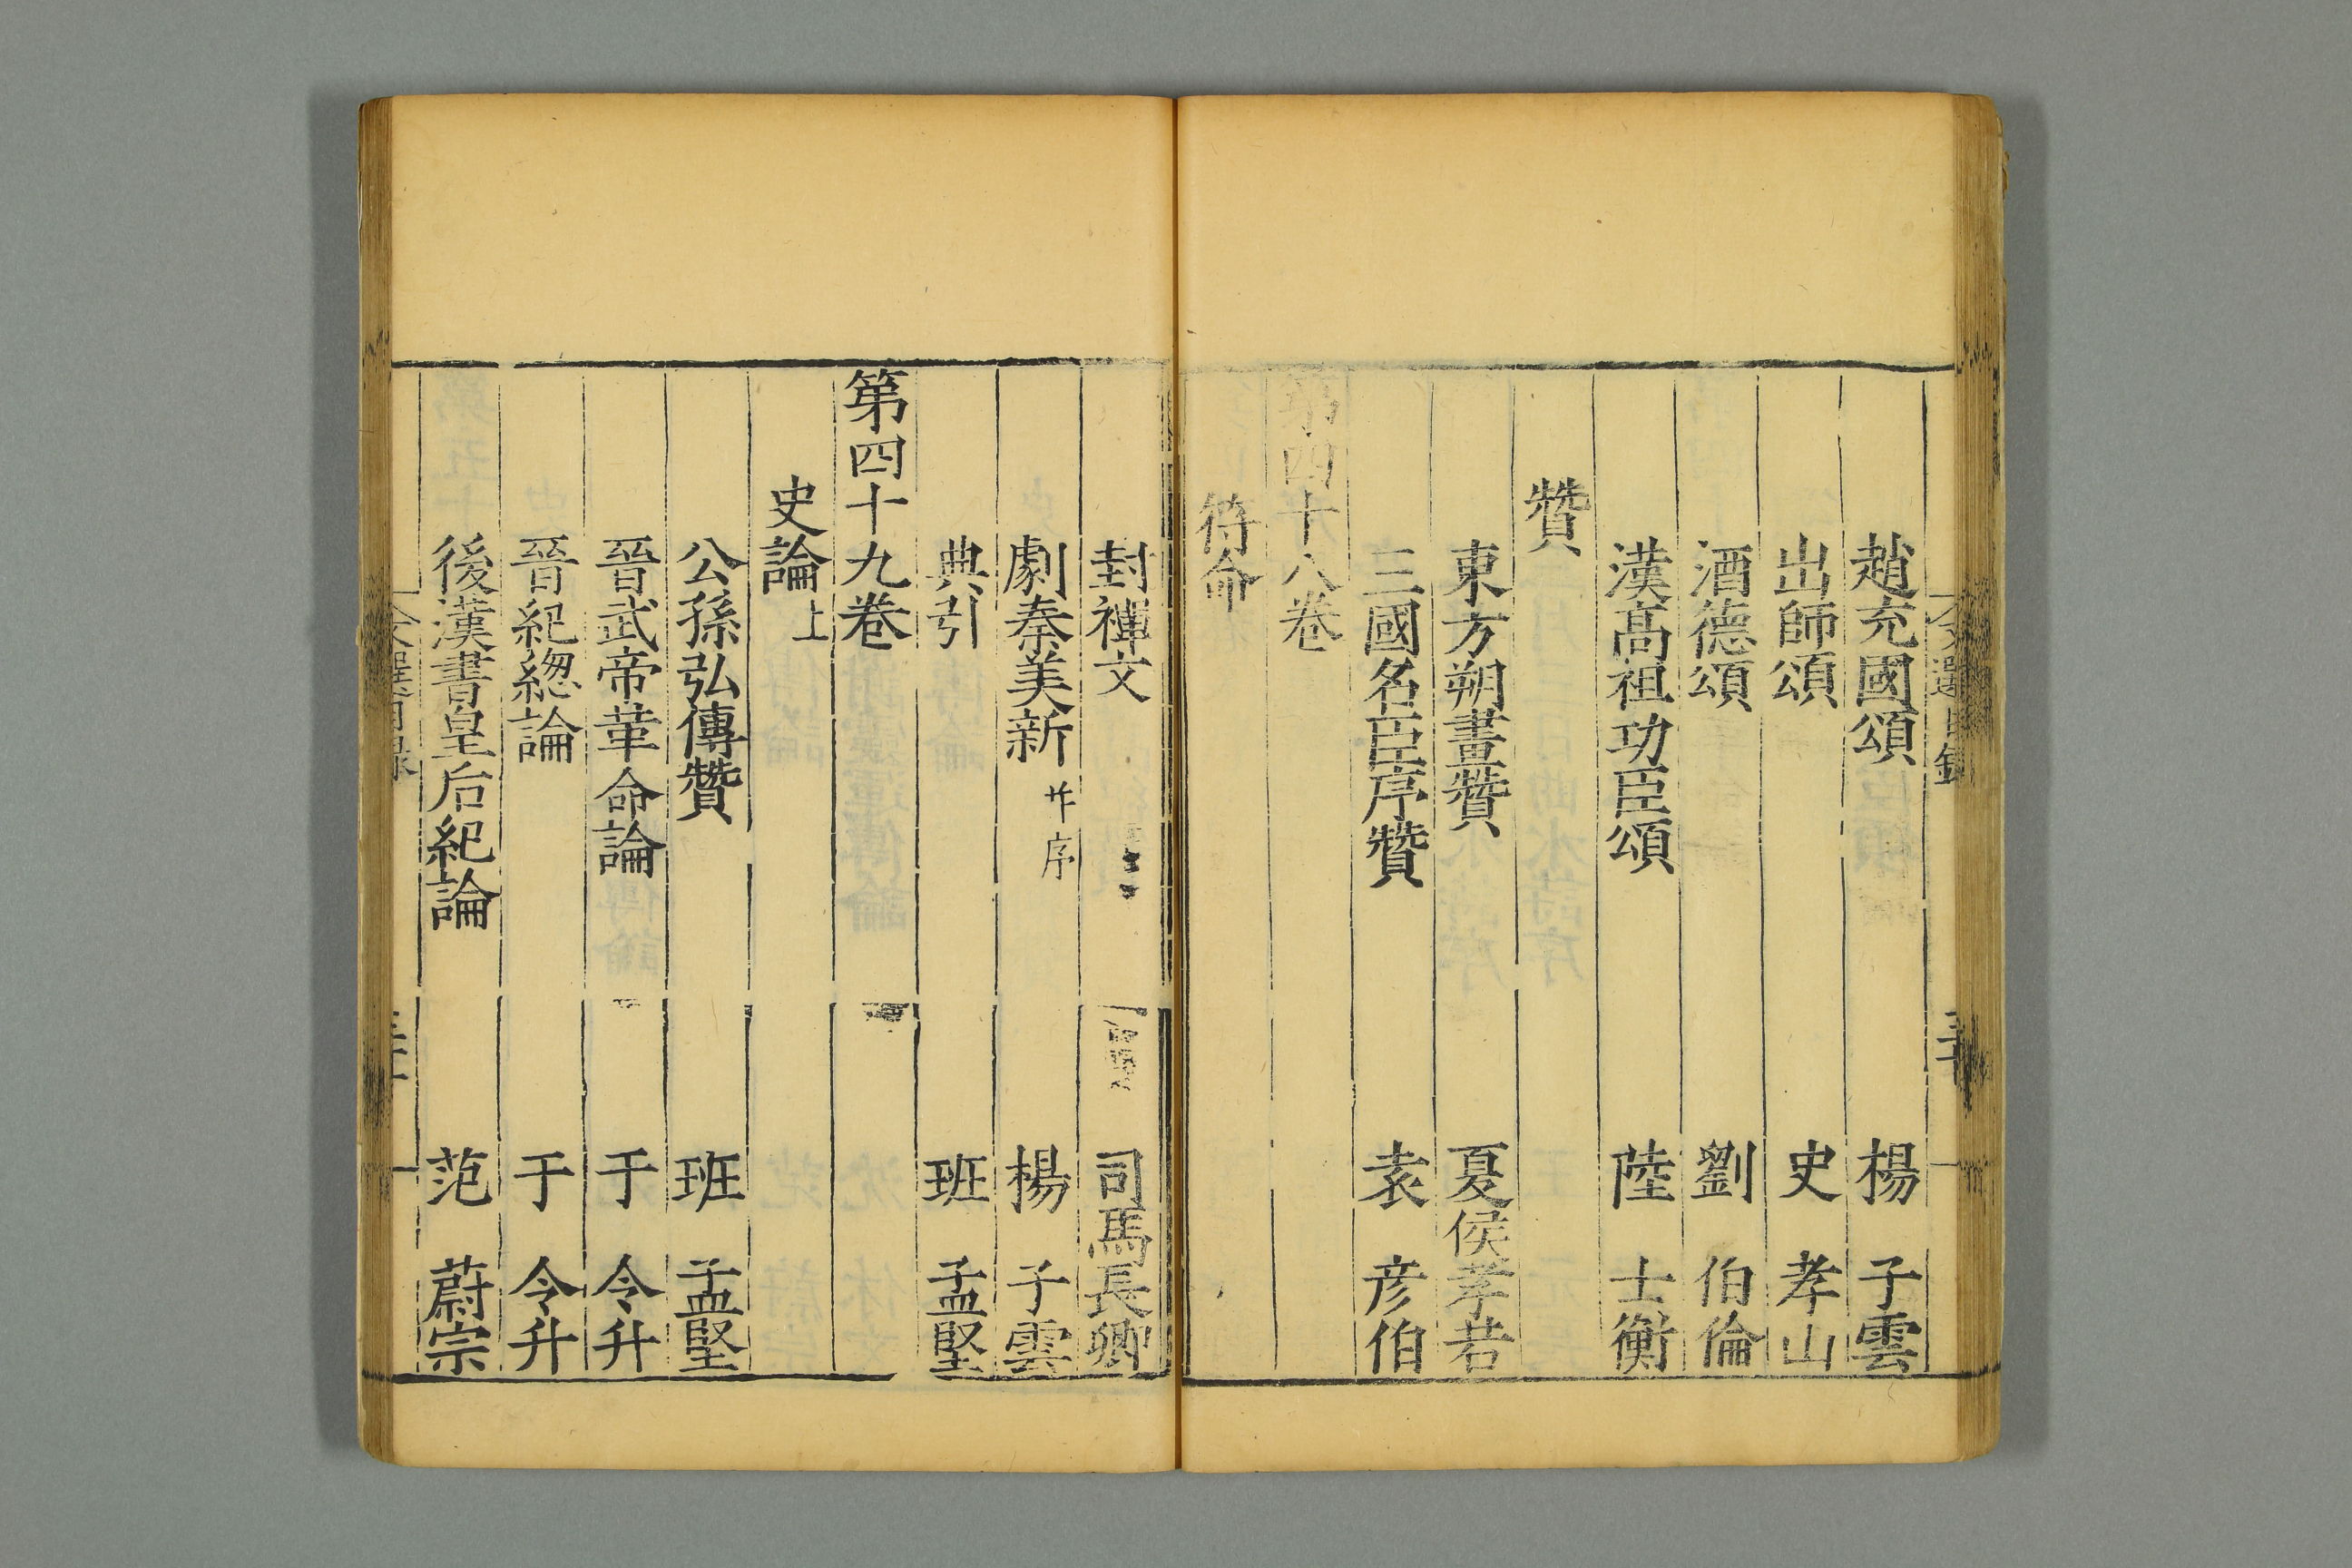 文選目錄
趙充國頌 楊 子雲
出師頌 史 孝山
酒德頌 劉 伯倫
漢高祖功臣頌 陸 士衡
贊
東方朔畫贊 夏侯孝若
三國名臣序贊 袁 彥伯
第四十八卷
符命
封禪文 司馬長卿
劇秦美新 并序 楊 子雲
典引 班 孟堅
第四十九卷
史論上
公孫弘傳贊 班 孟堅
晉武帝革命論 于 令升
晉紀總論 于 令升
後漢書皇后紀論 范 蔚宗